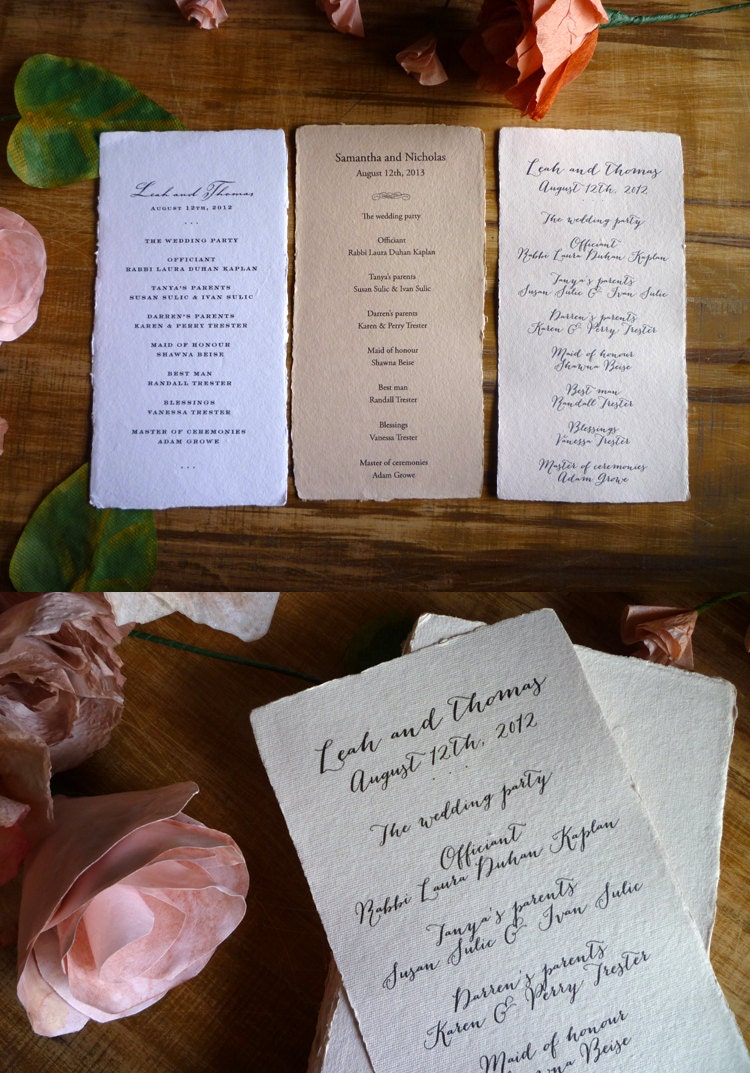 Leah and Thomas
AUGUST 12TH, 2012
. . .
THE WEDDING PARTY
OFFICIANT
RABBI LAURA DUHAN KAPLAN
TANYA'S PARENTS
SUSAN SULIC & IVAN SULIC
DARREN'S PARENTS
KAREN & PERRY TRESTER
MAID OF HONOUR
SHAWNA BEISE
BEST MAN
RANDALL TRESTER
BLESSINGS
VANESSA TRESTER
MASTER OF CEREMONIES
ADAM GROWE
. . .
Samantha and Nicholas
August 12th, 2013
The wedding party
Officiant
Rabbi Laura Duhan Kaplan
Tanya's parents
Susan Sulic & Ivan Sulic
Darren's parents
Karen & Perry Trester
Maid of honour
Shawna Beise
Best man
Randall Trester
Blessings
Vanessa Trester
Master of ceremonies
Adam Growe
Leah and Thomas
August 12th, 2012
. . .
The wedding party
Officiant
Rabbi Laura Duhan Kaplan
Tanya's parents
Susan Sulic & Ivan Sulic
Darren's parents
Karen & Perry Trester
Maid of honour
Shawna Beise
Best man
Randall Trester
Blessings
Vanessa Trester
Master of ceremonies
Adam Growe
Leah and Thomas
August 12th, 2012
. . .
The wedding party
Officiant
Rabbi Laura Duhan Kaplan
Tanya's parents
Susan Sulic & Ivan Sulic
Darren's parents
Karen & Perry Trester
Maid of honour
Beise